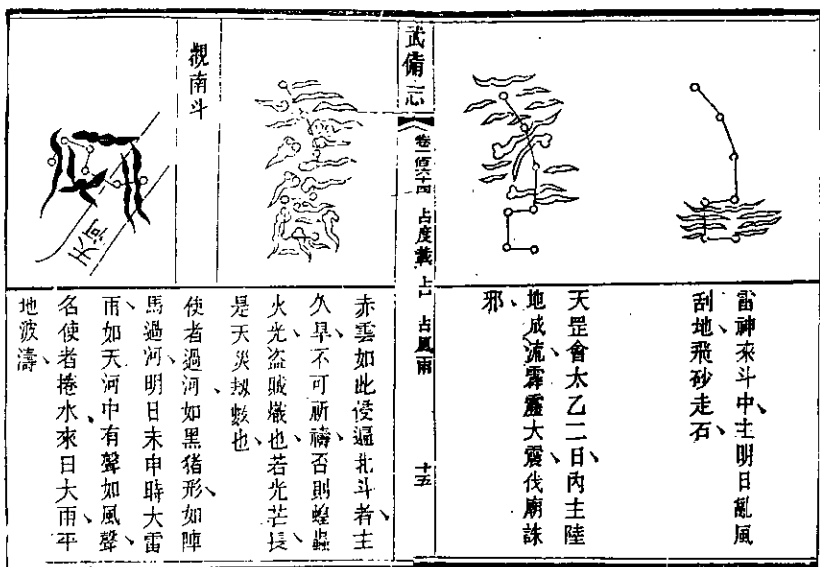 雷神來斗中、主明日亂風
刮地飛砂走石、
天罡會太乙二日、內主陸
地成流、霹靂大震、伐廟誅
邪、
武備志
卷二百六十四 占度載 占 占風雨
十五
赤雲如此侵逼北斗者、主
久旱、不可祈禱、否則蝗蟲
火光盜賊熾也、若光芒長、
是天災刼數也、
觀南斗
天河
使者過河、如黑猪形、如陣
馬過河、明日未申時大雷
雨、如天河中有聲如風聲、
名使者捲水、來日大雨、平
地波濤、